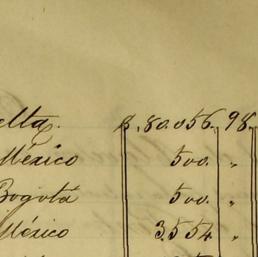 elta. $ 80.056. 98.
México 500. "
Bogotá 500. "
México 3.554 "